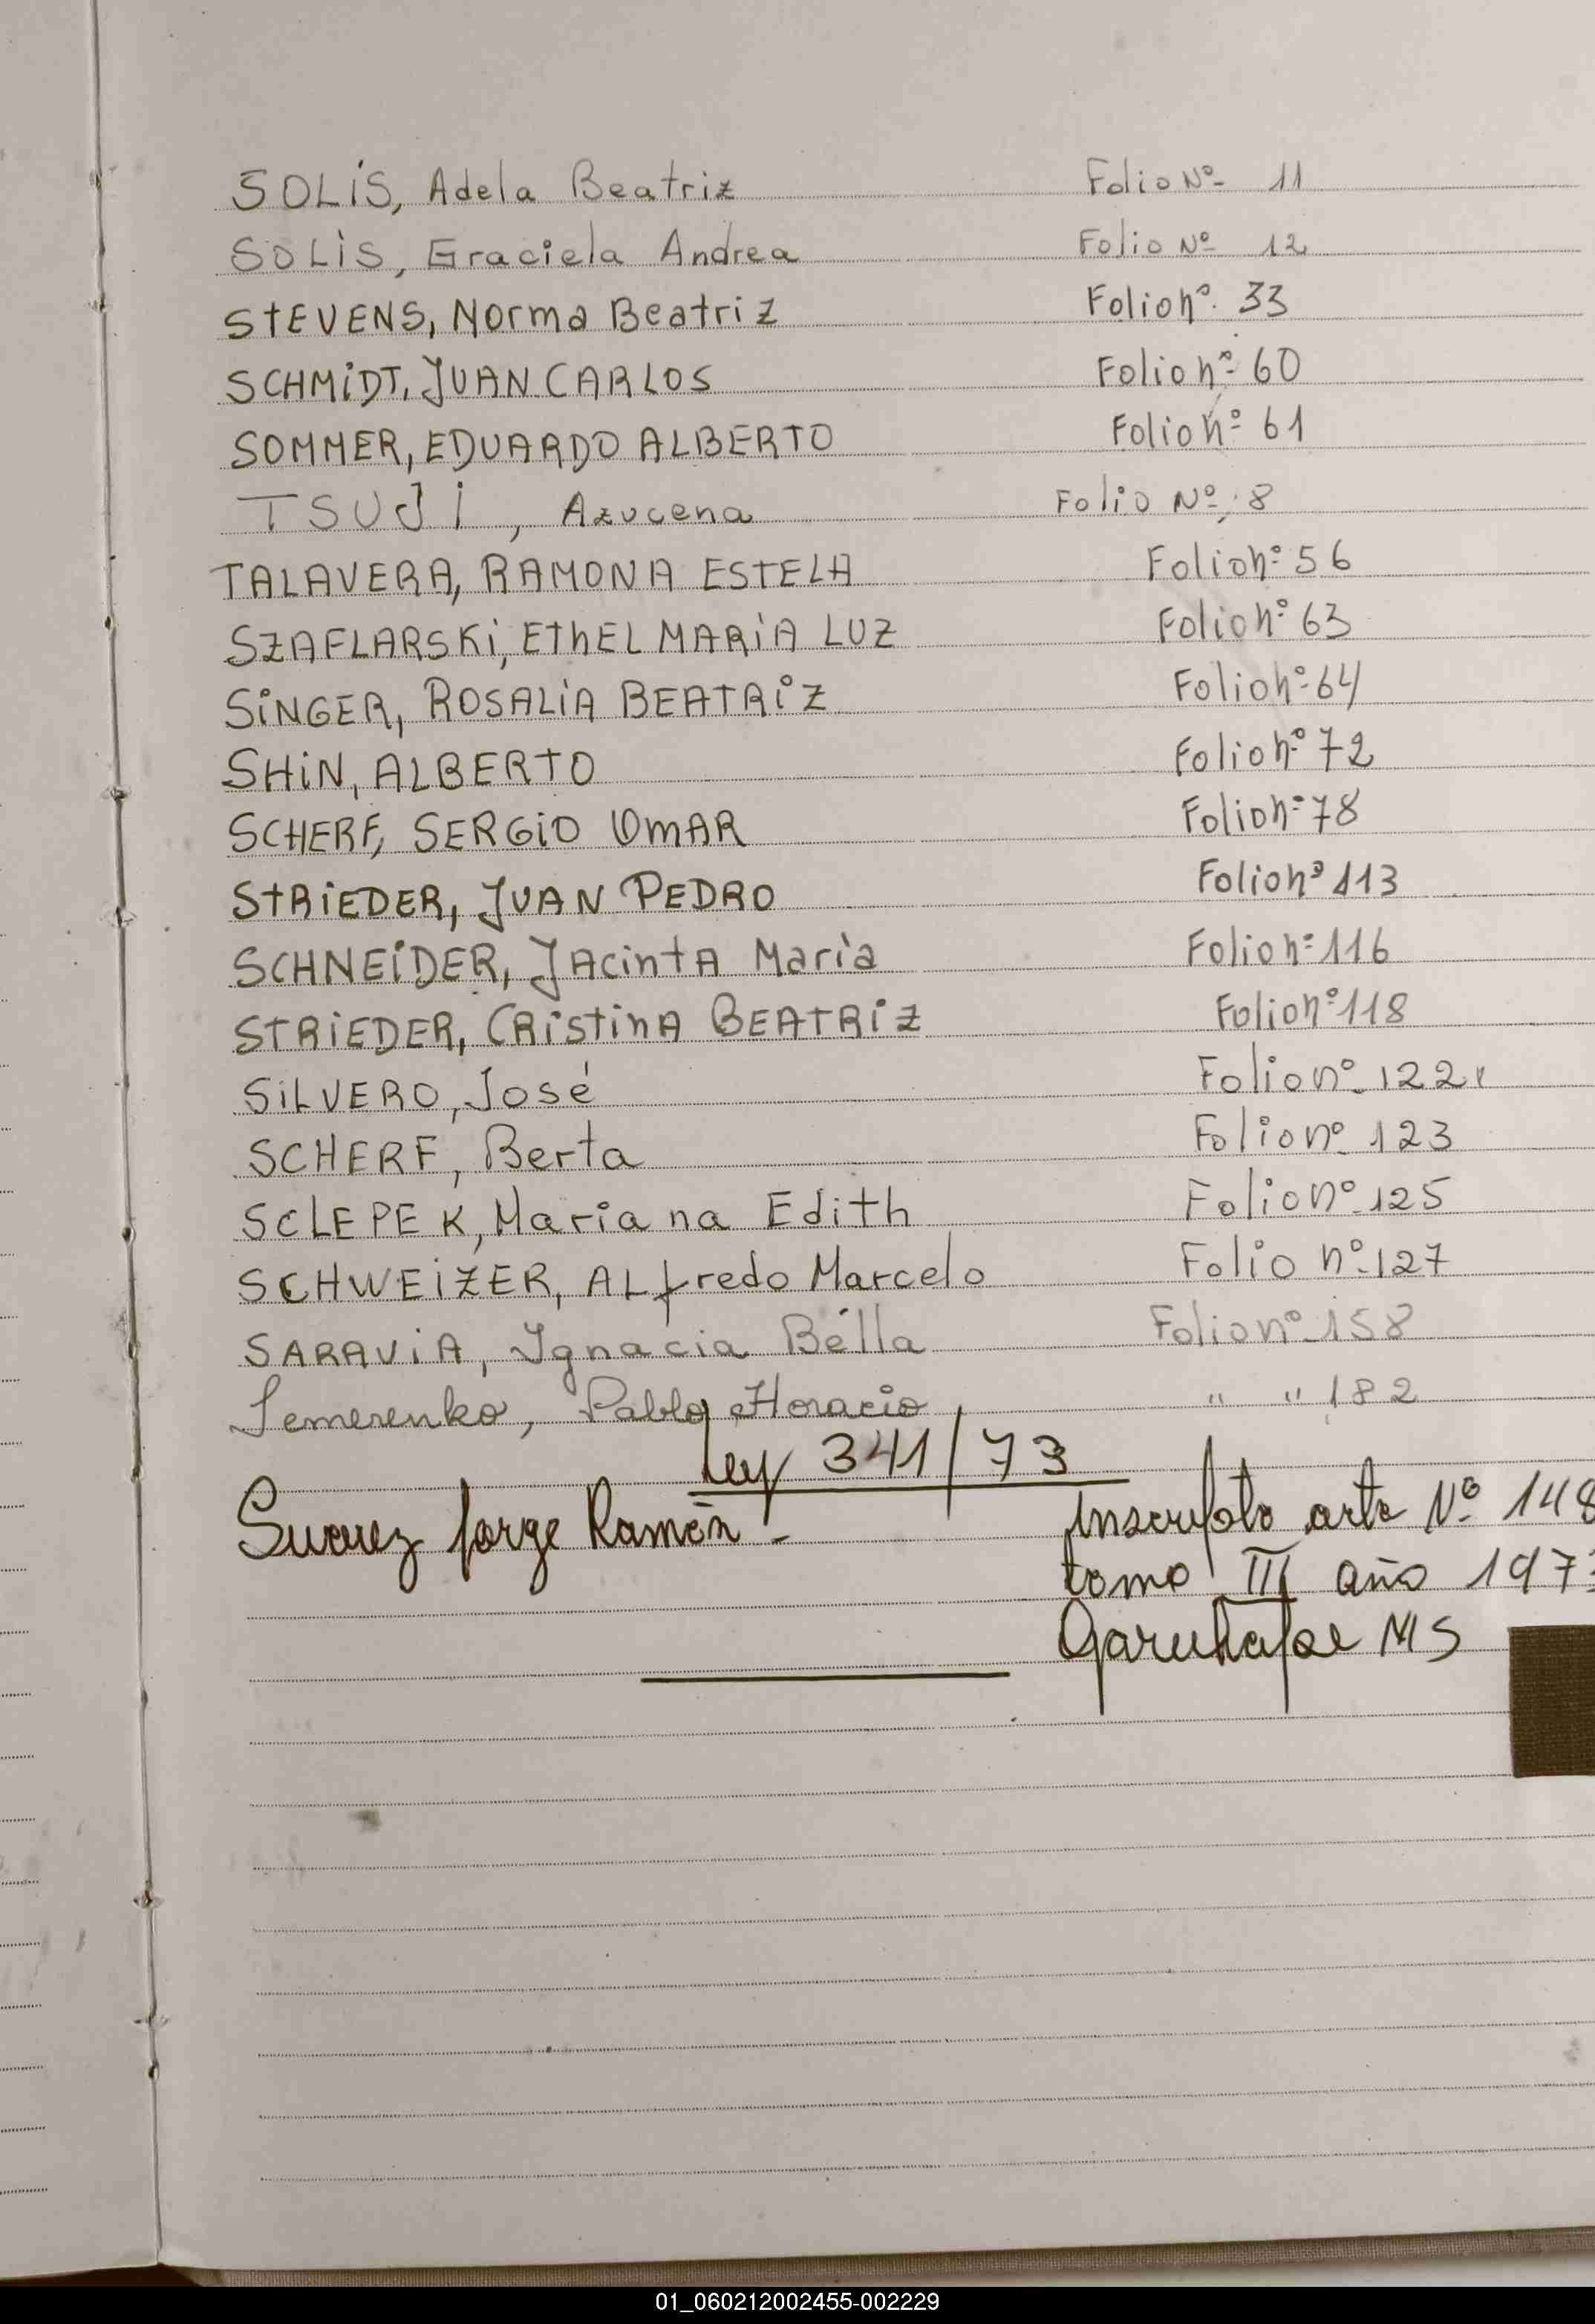 SOLIS, Adela Beatriz Folio Nº 11
SOLIS, Graciela Andrea Folio Nº 12
STEVENS, Norma Beatriz Folio nº 33
SCHMIDT, JUAN CARLOS Folio nº 60
SOMMER, EDUARDO ALBERTO Folio nº 61
TSUJI, Azucena Folio Nº 8
TALAVERA, RAMONA ESTELA Folio nº 56
SZAFLARSKI, EThEL MARIA LUZ Folio nº 63
SINGER, ROSALIA BEATRIZ Folio nº 64
SHIN, ALBERTO Folio nº 72
SCHERF, SERGIO OMAR Folio nº 78
STRIEDER, JUAN PEDRO Folio nº 113
SCHNEIDER, JAcintA Maria Folio nº 116
STRIEDER, CRistinA BEATRIZ Folio nº 118
SILVERO, José Folio nº 122
SCHERF, Berta Folio nº 123
SCLEPEK, Mariana Edith Folio nº 125
SCHWEIZER, ALfredo Marcelo Folio nº 127
SARAVIA, Ignacia Bella Folio nº 158
Semerenko, Pablo Horacio " " 182
Ley 341/73
Suarez Jorge Ramón - Inscripto acta Nº 148
tomo III año 197
Garuhape MS
01_060212002455-002229